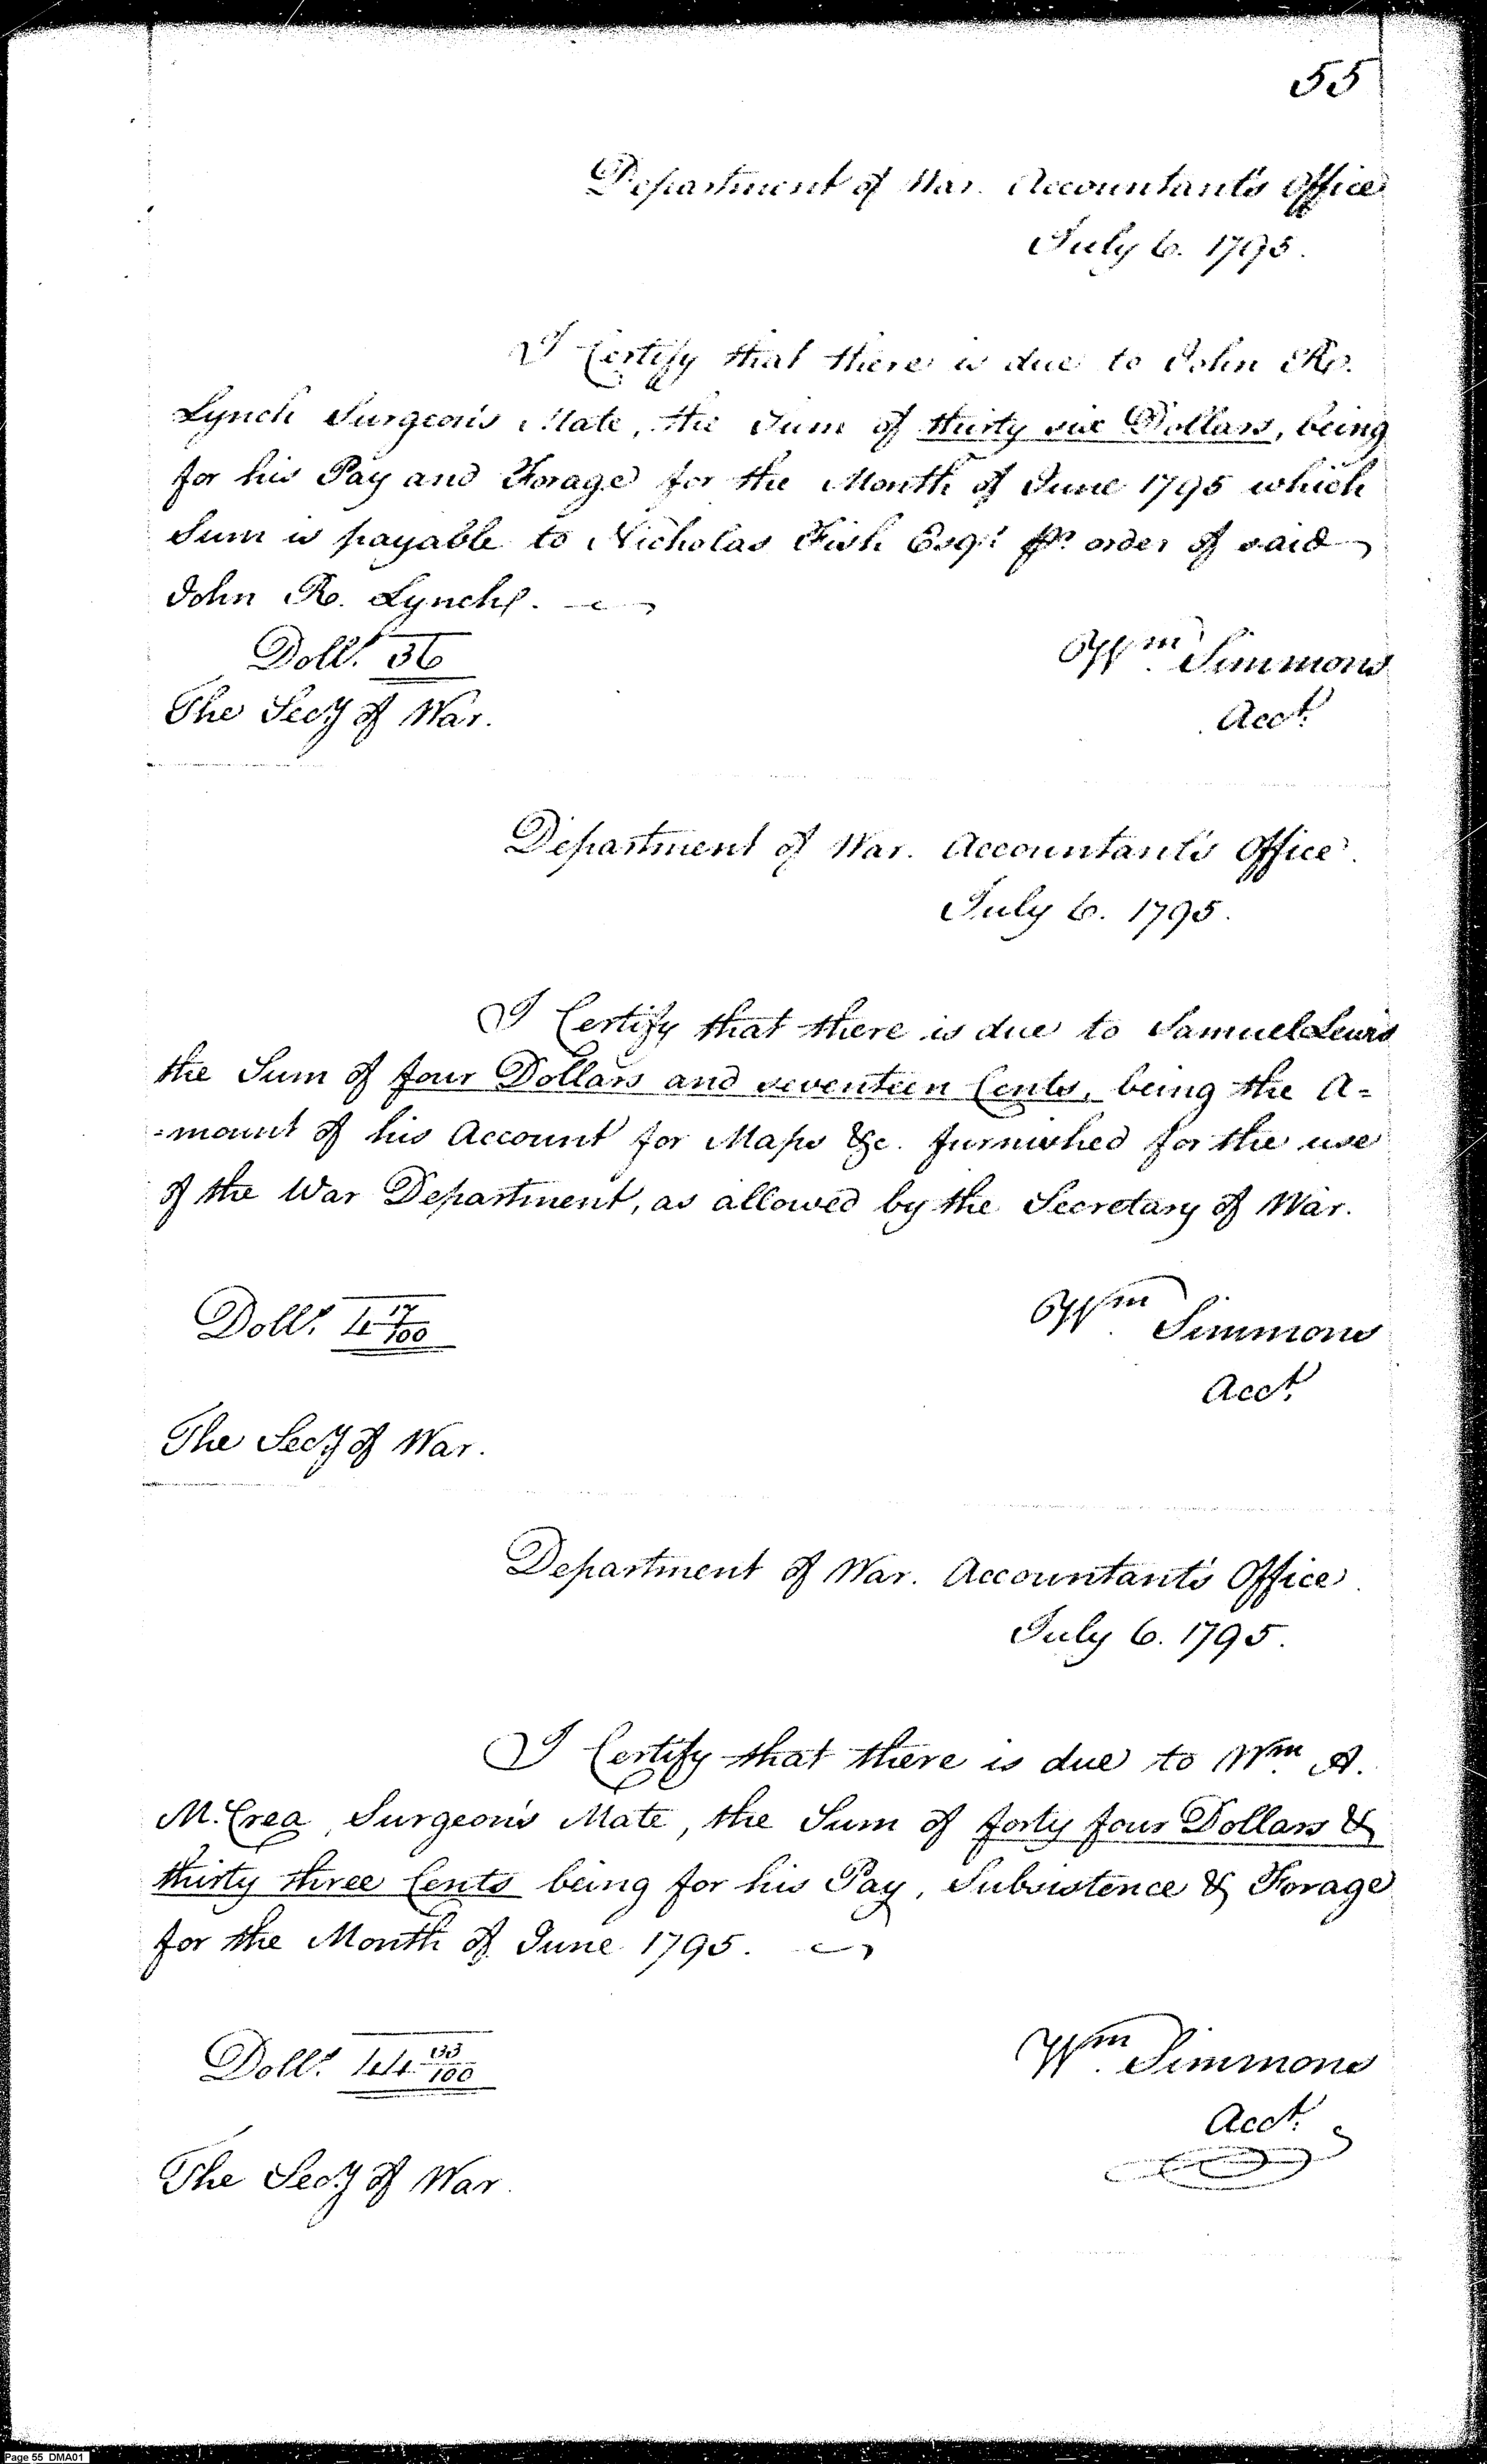 55
Department of War. Accountant's Office
July 6. 1795.
I Certify that there is due to John R.
Lynch Surgeon's Mate, the Sum of thirty six Dollars, being
for his Pay and Forage for the Month of June 1795 which
Sum is payable to Nicholas Fish Esqr. pr. order of said
John R. Lynch.
Dolls. 36
Wm. Simmons
The Secy of War.
Acct.
Department of War. Accountant's Office.
July 6. 1795.
I Certify that there is due to Samuel Lewis
the Sum of four Dollars and seventeen Cents, being the A=
=mount of his Account for Maps &c. furnished for the use
of the War Department, as allowed by the Secretary of War.
Dolls. 4 17/100
Wm. Simmons
Acct.
The Secy of War.
Department of War. Accountant's Office.
July 6. 1795.
I Certify that there is due to Wm. A.
M.Crea, Surgeon's Mate, the Sum of forty four Dollars &
thirty three Cents being for his Pay, Subsistence & Forage
for the Month of June 1795.
Dolls. 44 33/100
Wm. Simmons
Acct.
The Secy of War.
Page 55 DMA01